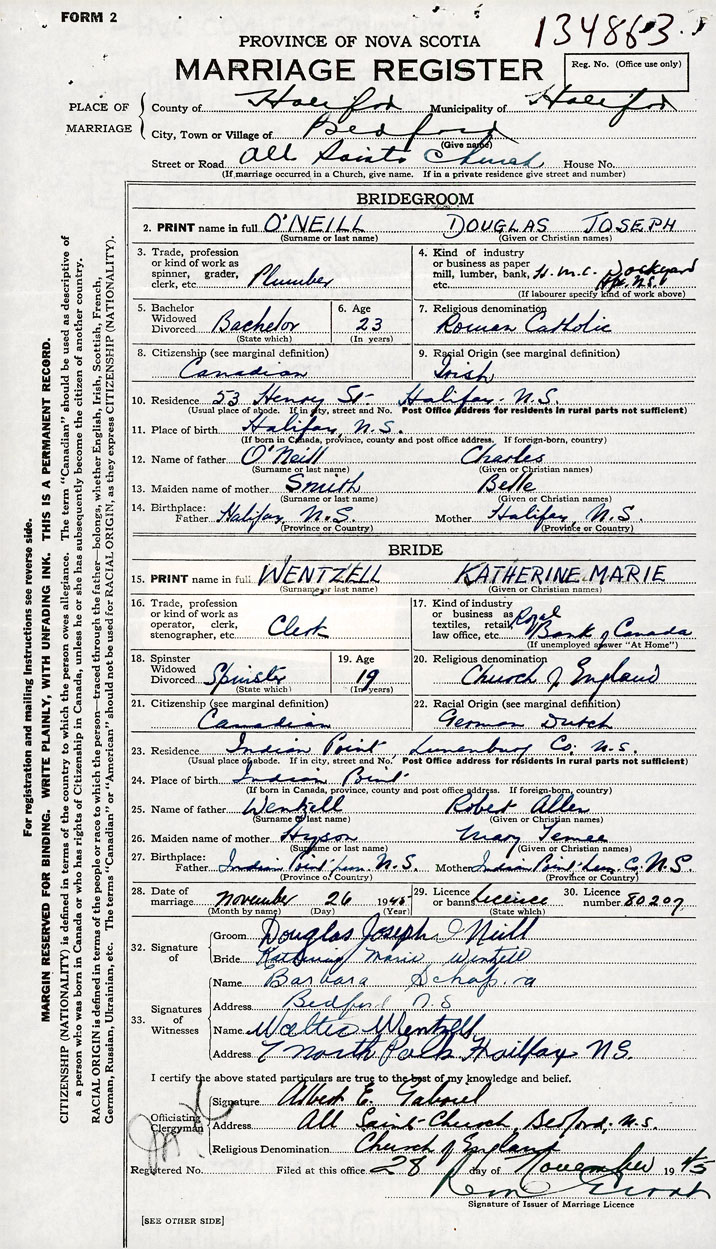 FORM 2
134863
PROVINCE OF NOVA SCOTIA
MARRIAGE REGISTER
Reg. No. (Office use only)
PLACE OF MARRIAGE
County of Halifax Municipality of Halifax
City, Town or Village of Bedford
(Give name)
Street or Road All Saints Church House No.
(If marriage occurred in a Church, give name. If in a private residence give street and number)
BRIDEGROOM
2. PRINT name in full O'NEILL DOUGLAS JOSEPH
(Surname or last name) (Given or Christian names)
3. Trade, profession or kind of work as spinner, grader, clerk, etc. Plumber
4. Kind of industry or business as paper mill, lumber, bank, etc. H.M.C. Dockyard Hfx. N.S.
(If labourer specify kind of work above)
5. Bachelor Widowed Divorced Bachelor (State which)
6. Age 23 (In years)
7. Religious denomination Roman Catholic
8. Citizenship (see marginal definition) Canadian
9. Racial Origin (see marginal definition) Irish
10. Residence 53 Henry St Halifax N.S.
(Usual place of abode. If in city, street and No. Post Office address for residents in rural parts not sufficient)
11. Place of birth Halifax, N.S.
(If born in Canada, province, county and post office address. If foreign-born, country)
12. Name of father O'Neill Charles
(Surname or last name) (Given or Christian names)
13. Maiden name of mother Smith Belle
(Surname or last name) (Given or Christian names)
14. Birthplace: Father Halifax, N.S. Mother Halifax, N.S.
(Province or Country) (Province or Country)
BRIDE
15. PRINT name in full WENTZELL KATHERINE MARIE
(Surname or last name) (Given or Christian names)
16. Trade, profession or kind of work as operator, clerk, stenographer, etc. Clerk
17. Kind of industry or business as textiles, retail, law office, etc. Royal Bank of Canada
(If unemployed answer "At Home")
18. Spinster Widowed Divorced Spinster (State which)
19. Age 19 (In years)
20. Religious denomination Church of England
21. Citizenship (see marginal definition) Canadian
22. Racial Origin (see marginal definition) German Dutch
23. Residence Indian Point Lunenburg Co. N.S.
(Usual place of abode. If in city, street and No. Post Office address for residents in rural parts not sufficient)
24. Place of birth Indian Point
(If born in Canada, province, county and post office address. If foreign-born, country)
25. Name of father Wentzell Robert Allen
(Surname or last name) (Given or Christian names)
26. Maiden name of mother Hyson Mary
(Surname or last name) (Given or Christian names)
27. Birthplace: Father Indian Point Lun. N.S. Mother Indian Point Lun. C. N.S.
(Province or Country) (Province or Country)
28. Date of marriage November 26 1945
(Month by name) (Day) (Year)
29. Licence or banns Licence (State which)
30. Licence number 80207
32. Signature of
Groom Douglas Joseph O'Neill
Bride Katherine Marie Wentzell
33. Signatures of Witnesses
Name Barbara
Address Bedford N.S
Name Walter Wentzell
Address 7 North Park Halifax N.S.
I certify the above stated particulars are true to the best of my knowledge and belief.
Officiating Clergyman
Signature Albert E. Gabriel
Address All Saints Church, Bedford, N.S.
Religious Denomination Church of England
Registered No. Filed at this office 28 day of November 1945
Signature of Issuer of Marriage Licence
[SEE OTHER SIDE]
For registration and mailing instructions see reverse side.
MARGIN RESERVED FOR BINDING. WRITE PLAINLY, WITH UNFADING INK. THIS IS A PERMANENT RECORD.
CITIZENSHIP (NATIONALITY) is defined in terms of the country to which the person owes allegiance. The term "Canadian" should be used as descriptive of
a person who was born in Canada or who has rights of Citizenship in Canada, unless he or she has subsequently become the citizen of another country.
RACIAL ORIGIN is defined in terms of the people or race to which the person—traced through the father—belongs, whether English, Irish, Scottish, French,
German, Russian, Ukrainian, etc. The terms "Canadian" or "American" should not be used for RACIAL ORIGIN, as they express CITIZENSHIP (NATIONALITY).